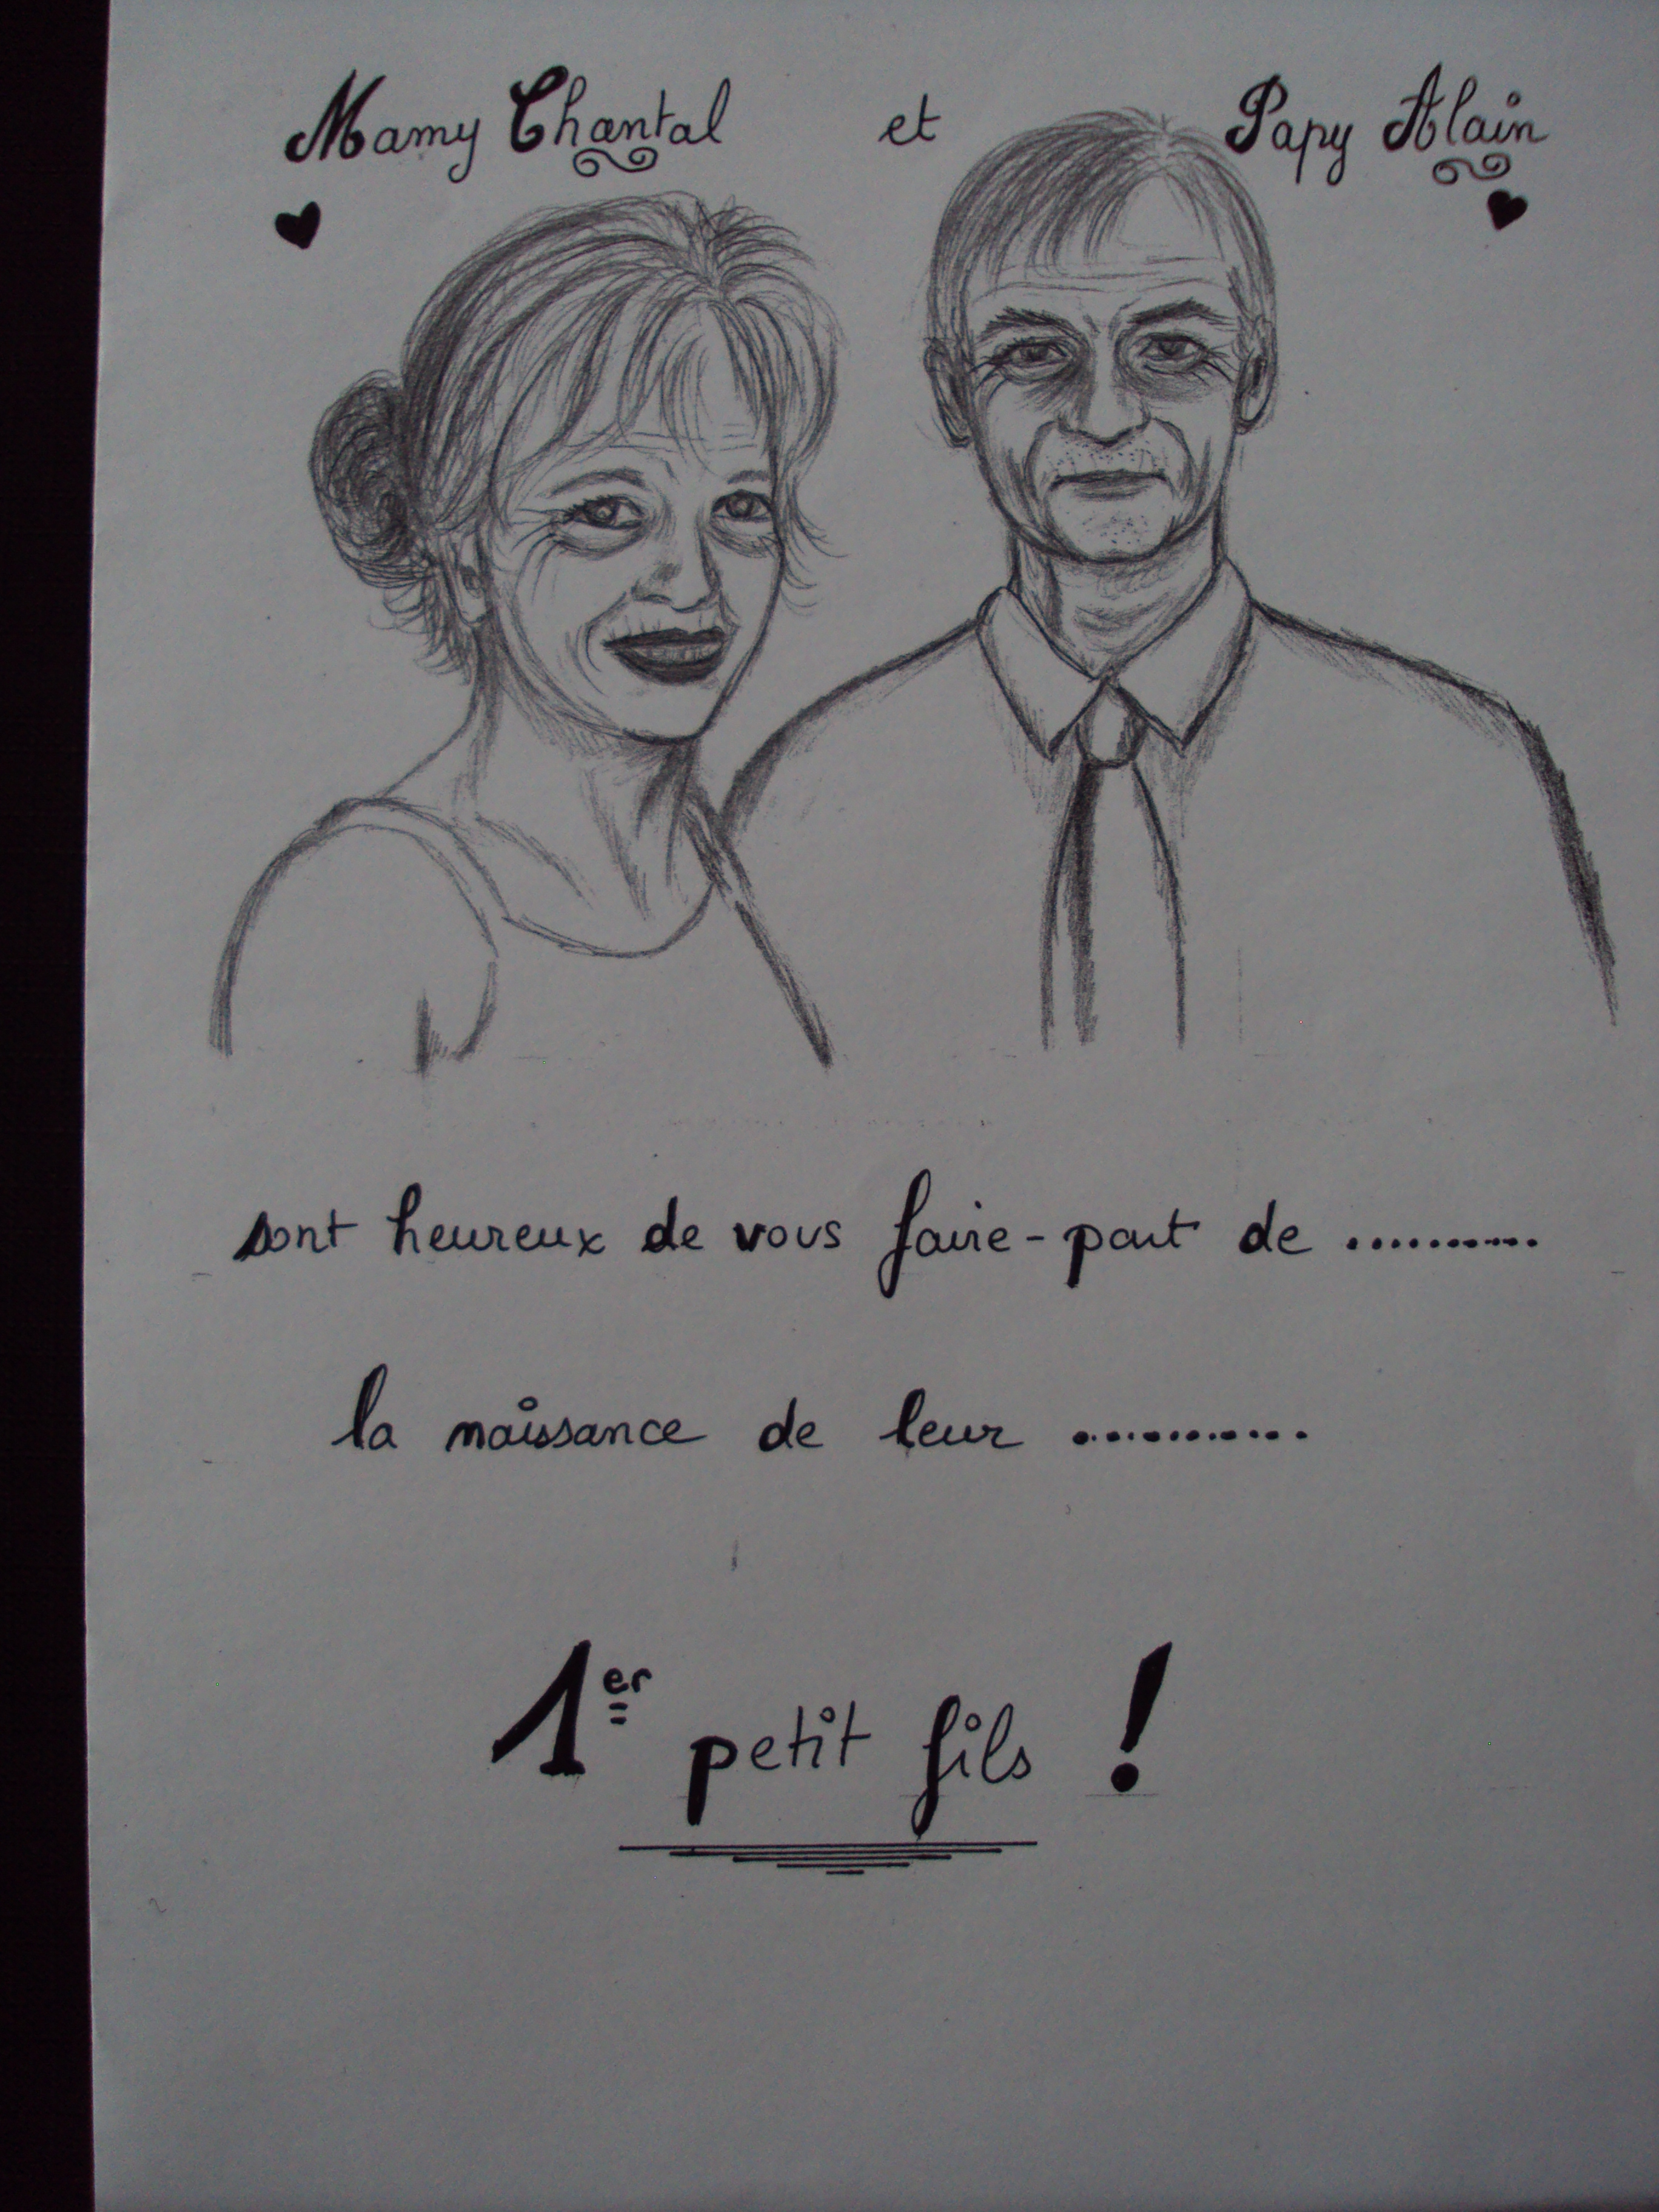 Mamy Chantal et Papy Alain
sont heureux de vous faire-part de ...........
la naissance de leur ............
1er petit fils !